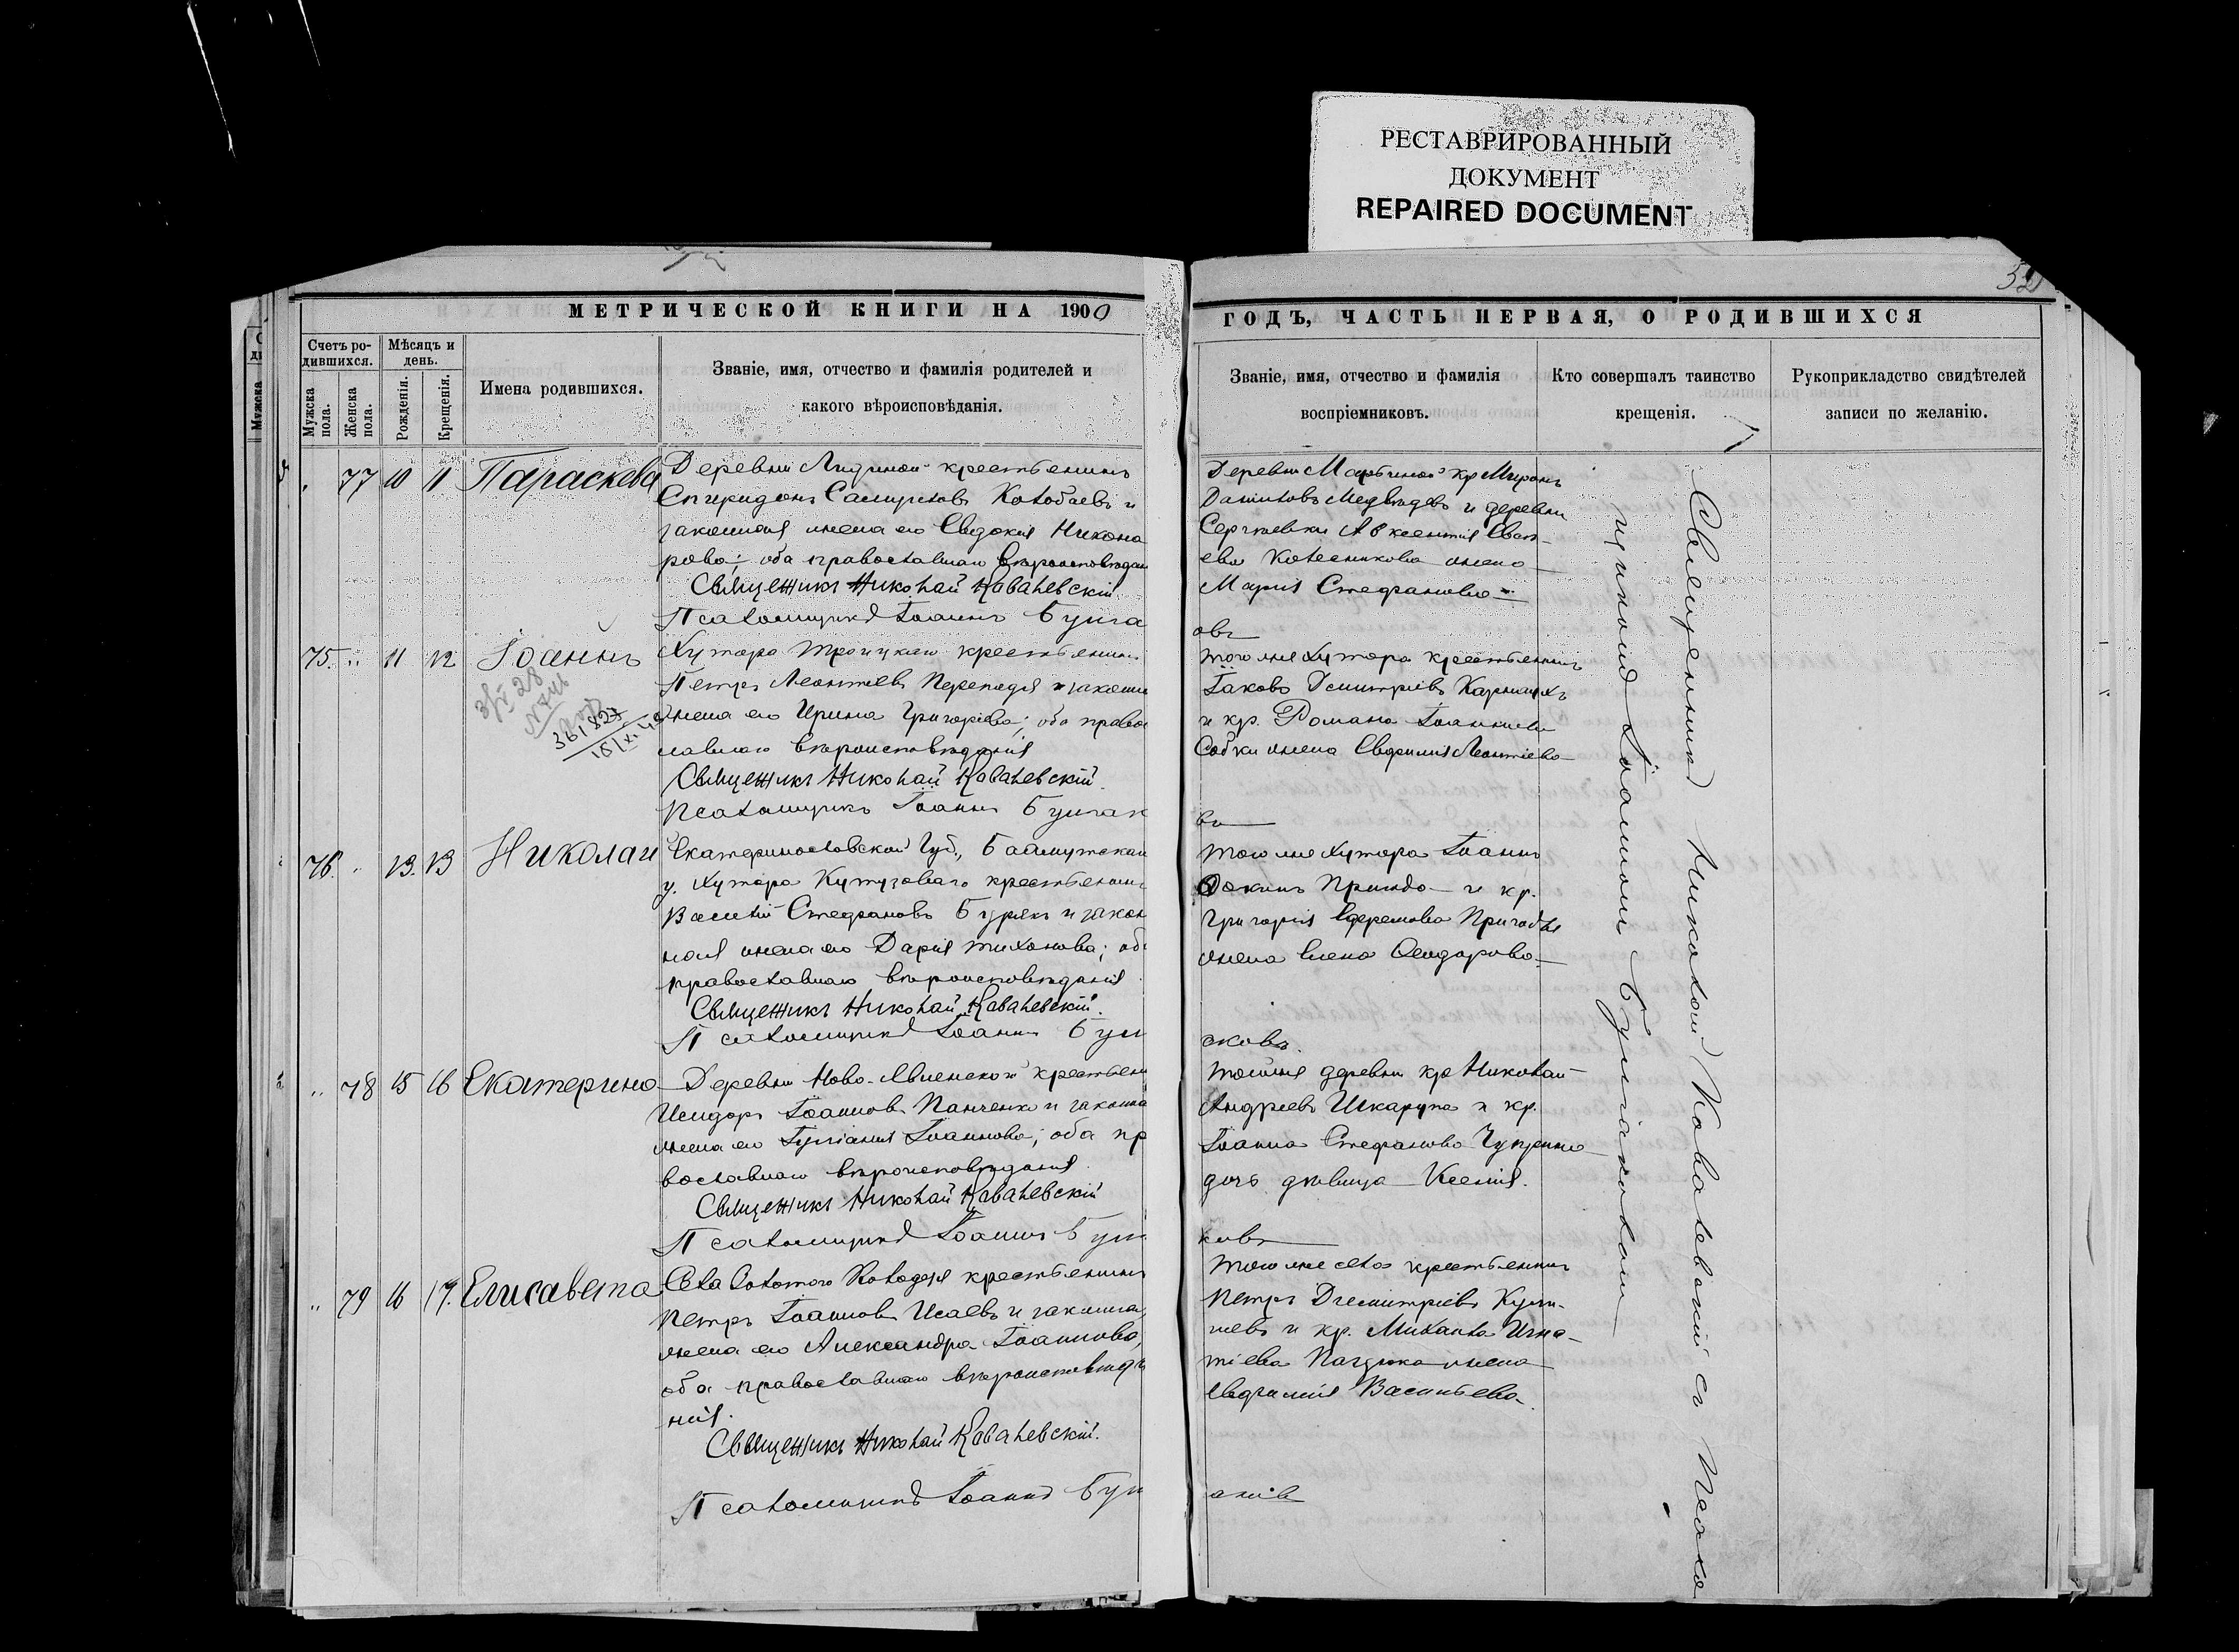 РЕСТАВРИРОВАННЫЙ
ДОКУМЕНТ
REPAIRED DOCUMENT
52
МЕТРИЧЕСКОЙ КНИГИ НА 1900
ГОДЪ, ЧАСТЬ ПЕРВАЯ, О РОДИВШИХСЯ
Счетъ ро-
дившихся.
Мужска
пола.
Женска
пола.
Мѣсяцъ и
день.
Рожденія.
Крещенія.
Имена родившихся.
Званіе, имя, отчество и фамилія родителей и
какого вѣроисповѣданія.
Званіе, имя, отчество и фамилія
воспріемниковъ.
Кто совершалъ таинство
крещенія.
Рукоприкладство свидѣтелей
записи по желанію.
77 10 11 Параскева
Деревни Лидиной крестьянинъ
Спиридонъ Самуиловъ Колобаевъ и
законная жена его Евдокія Никано
рова; оба православнаго вѣроисповѣдан
Священникъ Николай Ковалевскій
Псаломщикъ Іоаннъ Булга
ковъ
Деревни Марьиной кр Миронъ
Даниловъ Медвѣдевъ и деревни
Сергѣевки Авксентія
Колесникова жена
Марія Стефановна
75 " 11 12 Іоаннъ
Хутора Троицкаго крестьянинъ
Петръ Леонтіевъ и законн
жена его Ирина Григоріева; оба право
славнаго вѣроисповѣданія
Священникъ Николай Ковалевскій.
Псаломщикъ Іоаннъ Булгак
въ
того же хутора крестьянинъ
Іаковъ Димитріевъ
и кр. Романа Іоаннова
Собки жена Евфимія Леонтіева
76. " 13. 13 Николай
Екатеринославской Губ., Бахмутскаго
у. хутора Кутузоваго крестьянинъ
Василій Стефановъ Бурякъ и закон
ная жена его Дарія Тихонова; оба
православнаго вѣроисповѣданія
Священникъ Николай Ковалевскій.
Псаломщикъ Іоаннъ Бул
аковъ.
того же хутора Іоаннъ
и кр.
Григорія Ефремова
жена Елена Ѳеодорова
" 78 15 16 Екатерина
Деревни Ново- крестьян
Исидоръ Іоанновъ Панченко и законна
жена его Іуліанія Іоаннова; оба пр
вославнаго вѣроисповѣданія
Священникъ Николай Ковалевскій
Псаломщикъ Іоаннъ Бул
ковъ
той же деревни кр Николай
Андреевъ Шкарупа и кр.
Іоанна Стефанова Чуприна
дочь дѣвица Ксенія.
" 79 16 17. Елисавета
Села Золотого Колодезя крестьянинъ
Петръ Іоанновъ Исаевъ и законная
жена его Александра Іоаннова,
оба православнаго вѣроисповѣда
нія.
Священникъ Николай Ковалевскій.
Псаломщикъ Іоаннъ Бул
аковъ
того же села крестьянинъ
Петръ Димитріевъ
и кр. Михаила Игна-
тіева жена
Евфимія Васильева.
Священникъ Николай Ковалевскій съ Псало
мщикомъ Іоанномъ Булгаковымъ